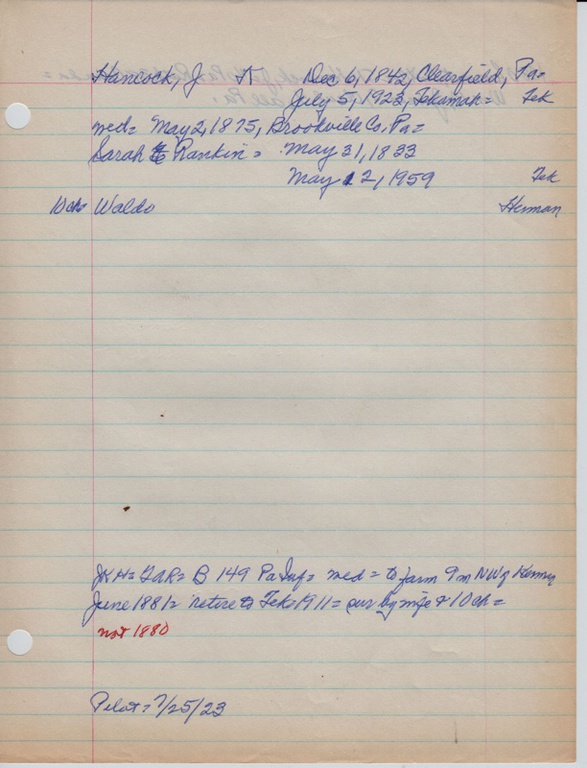 Hancock, J K Dec 6, 1842, Clearfield, Pa=
July 5, 1923, Tekamah= Tek
med= May 2, 1875, Brookville Co. Pa=
Sarah E Rankin= May 31, 1833
May 12, 1959 Tek
10ch= Waldo Herman
JKH= GAR= B 149 Pa Inf= med= to farm 9m NW of Herman
June 1881= retire to Tek 1911= sur by wife & 10ch=
not 1880
Pilot= 7/25/23